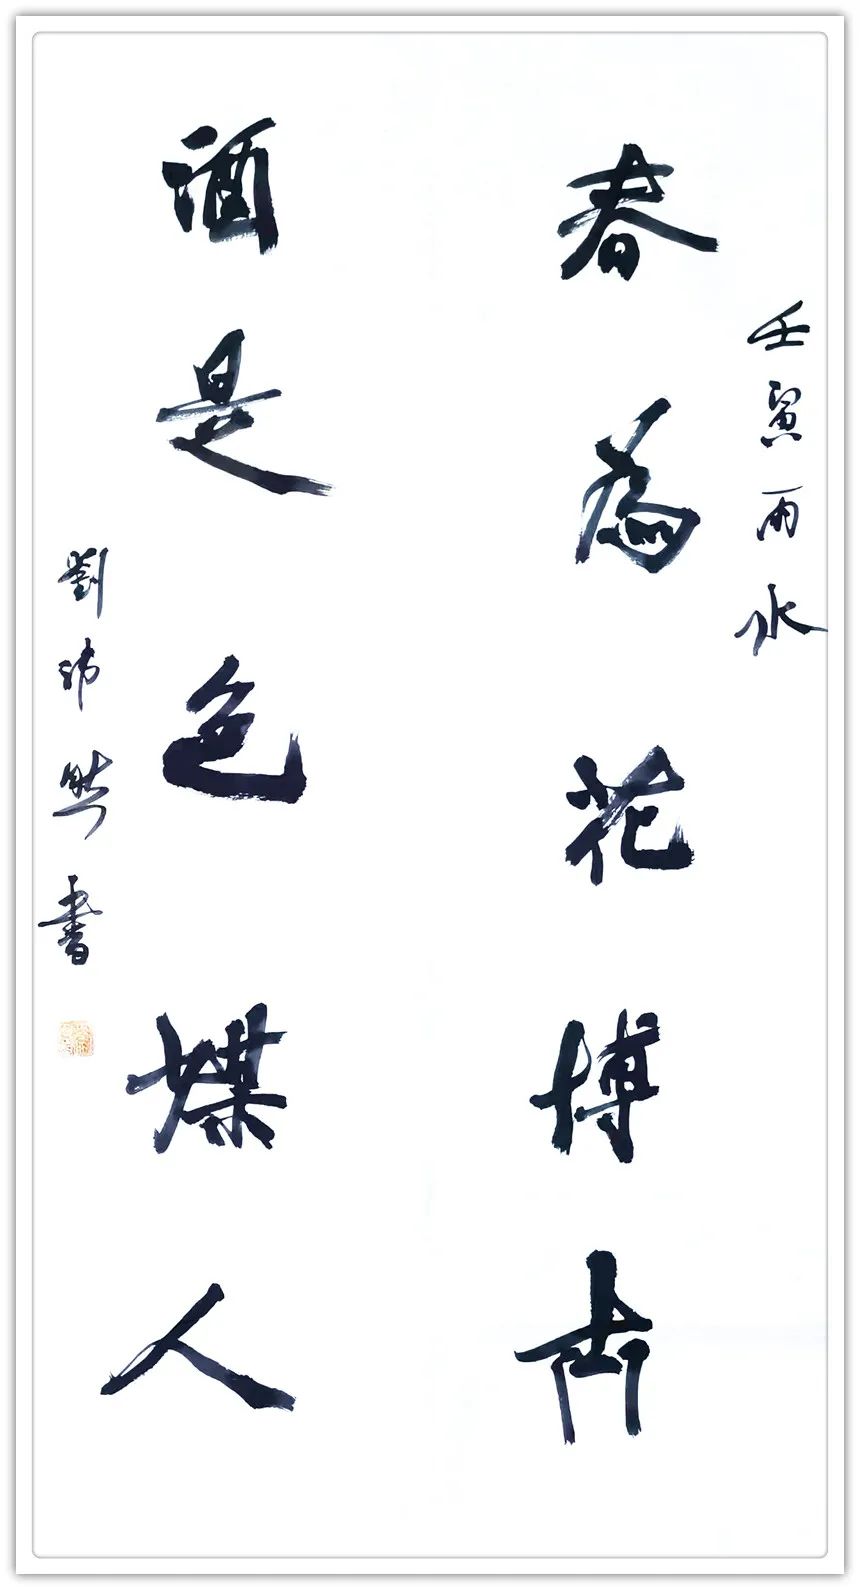 壬寅雨水
春為花博士
酒是色媒人
劉沛然書